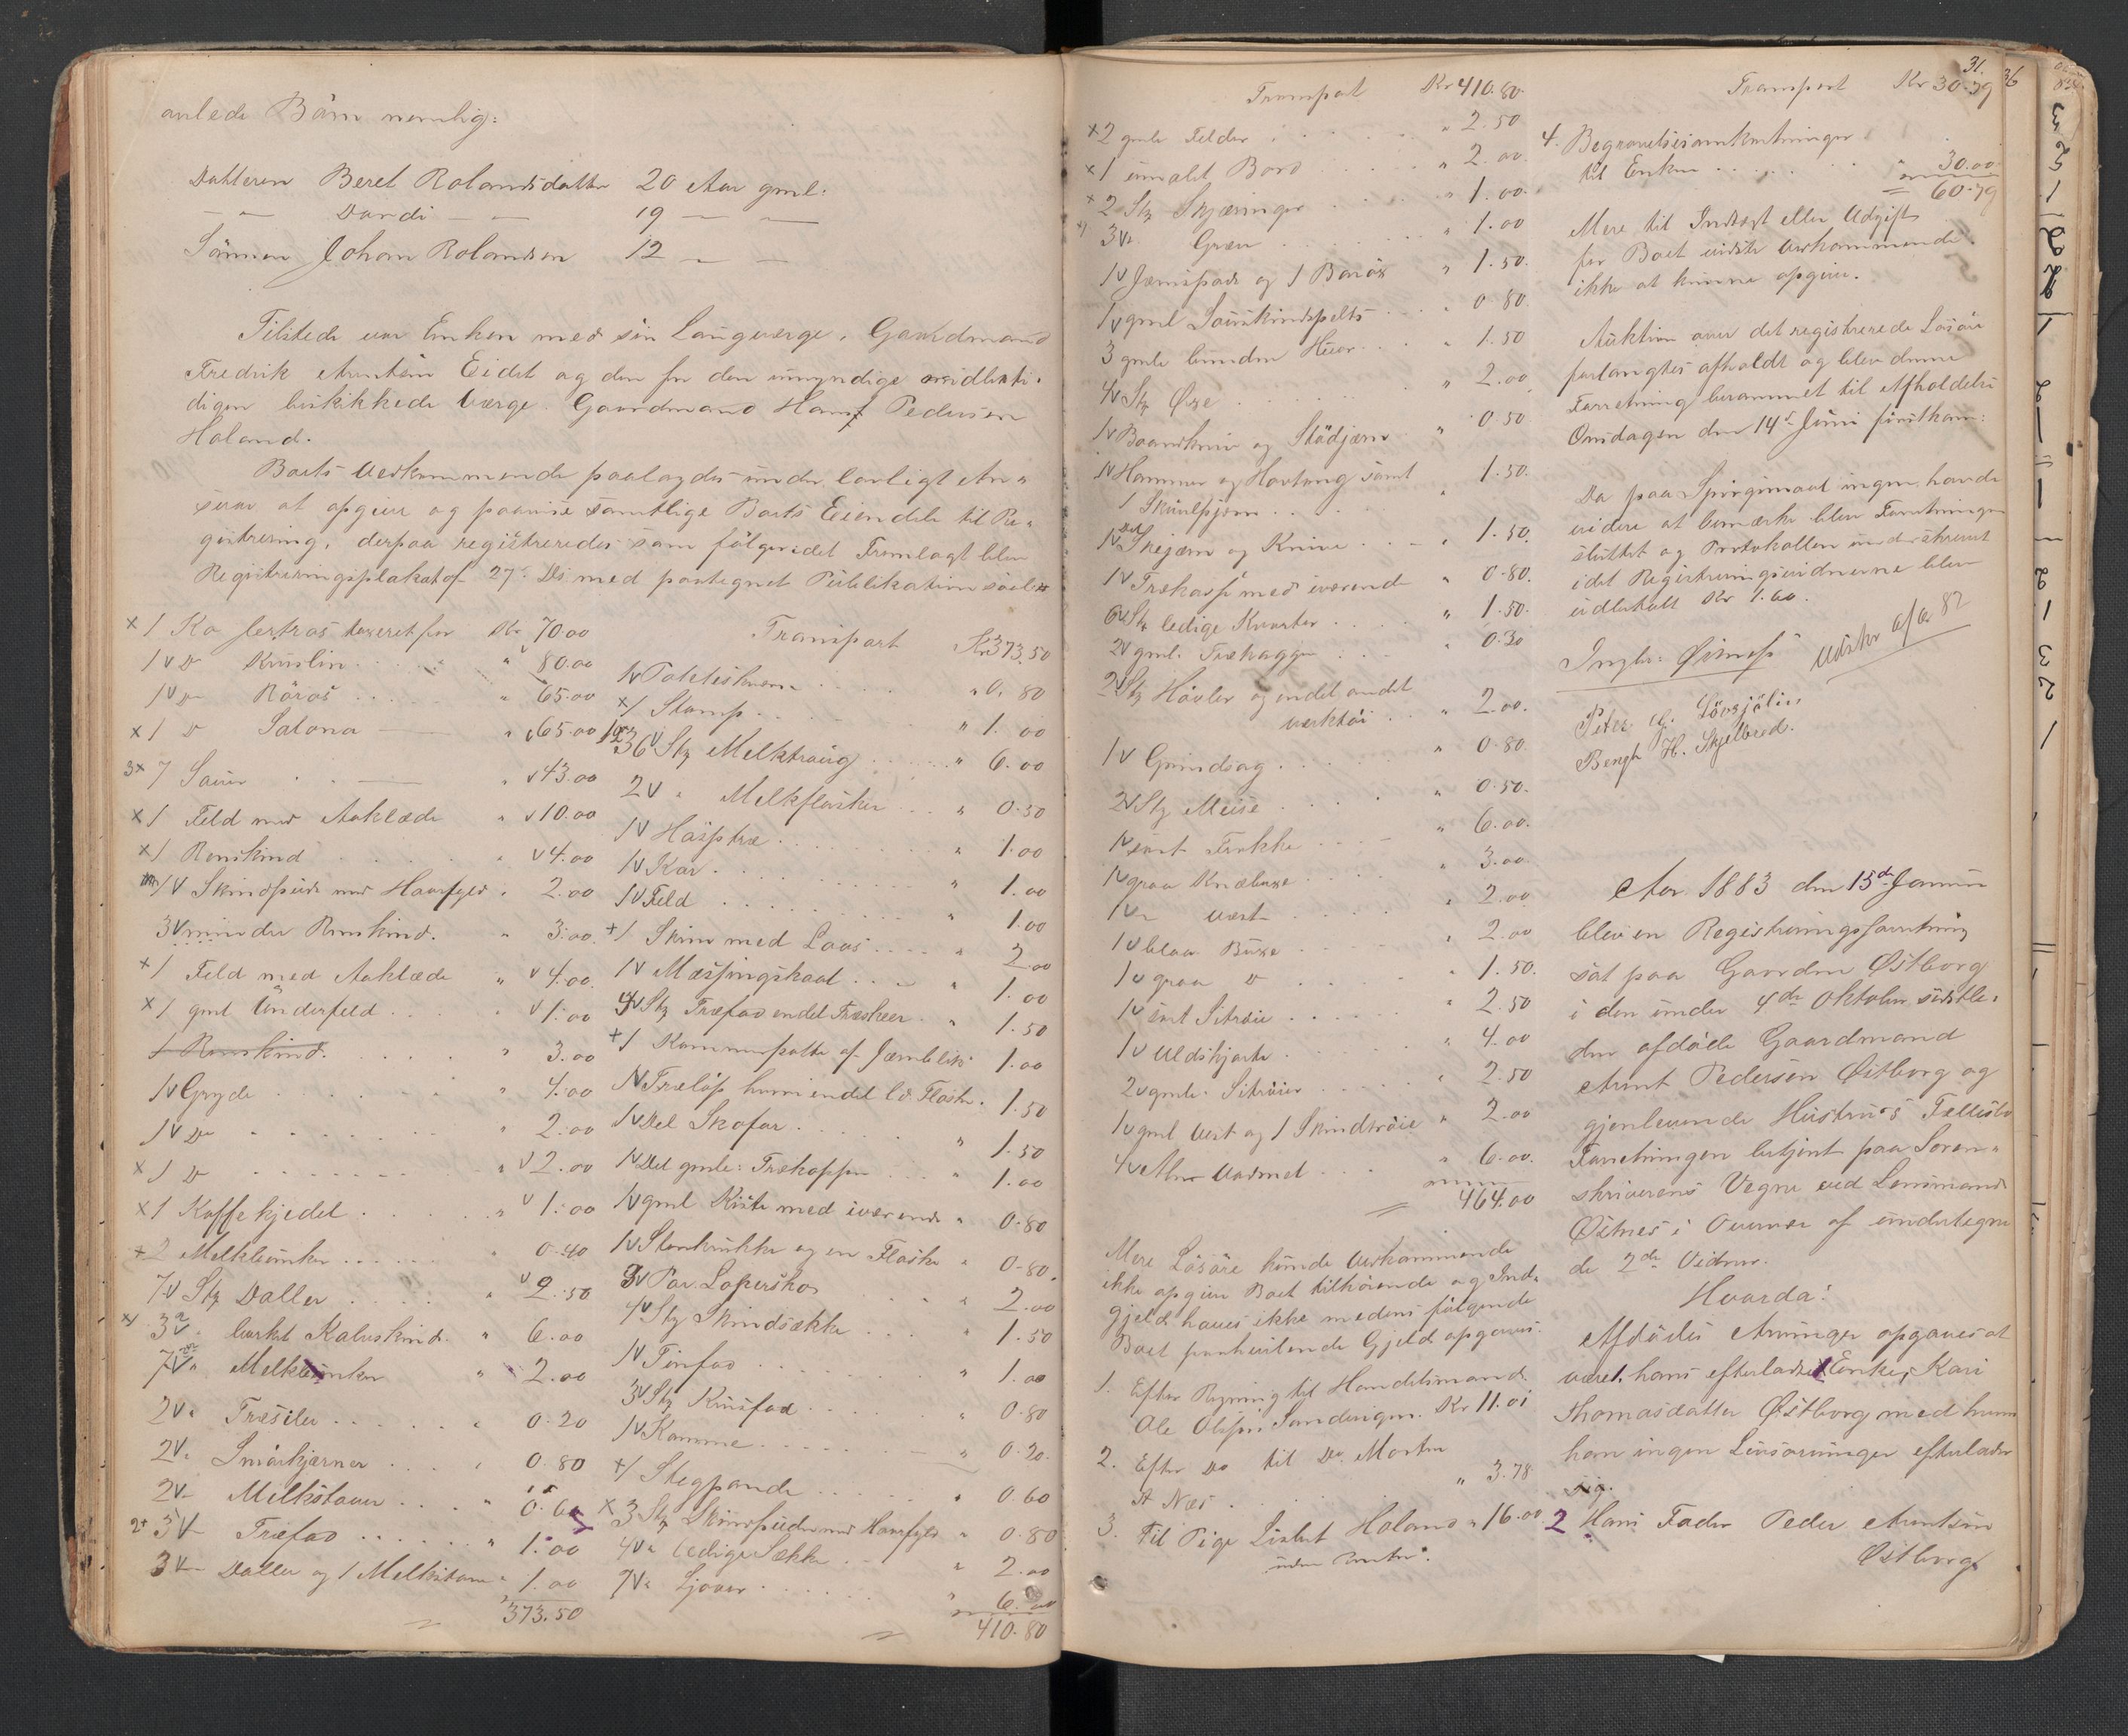 avlede Børn nemlig:
Datteren Beret Rolandsdatter 20 Aar gml:
— Dordi — — 19 — —
Sønnen Johan Rolandsen 12 — —
Tilstede var Enken med sin Laugværge, Gaardmand
Fredrik Arntsen Eidet og den for den umyndige midlerti-
digen beskikkede Værge Gaardmand Hans Pedersen
Holand.
Boets Vedkommende paalagdes under lovligt An-
svar at opgive og paavise samtlige Boets Eiendele til Re-
gistrering, derpaa registreredes som følger idet Fremlagt blev
Registreringsplakat af 27 Ds med paategnet Publikation
x 1 Ko taxeret for Kr 70.00
1 v D Kruslin " 80.00
1 v D Røros " 65.00
x 1 D Salona — " 65.00
3x 7 Sauer — " v 43.00
x 1 Feld med Aaklæde " v 10.00
x 1 Renskind " v 4.00
1 v Skindpude med Haarfyld " 2.00
3 v mindre Renskind. " 3.00
x 1 Feld med Aaklæde " v 4.00
x 1 gml Underfeld " v 1.00
1 Renskind " 3.00
1 v Gryde " 4.00
1 v Do " 2.00
x 1 D " v 2.00
x 1 Kaffekjedel " v 1.00
x 2 Melkebunker 0.40
7 v Stk Daller " v 2.50
x 3 v " barket Kalveskind " 6.00
7 v " Melkebunker " 2.00
2 v " Træsiler " 0.20
2 v " Smørkjærner " 0.80
2 v — Melkstauer " 0.60
2+ 3 v — Træfad " 1.00
3 v — Daller og 1 Melkstav " 1.00
373.50
Transport Kr 373.50
1 v " 0.80
x 1 Stamp " 1.00
36 v Stk Melktraug " 6.00
2 v " Melkflasker " 0.50
1 v Hasptræ " 1.00
1 v Kar " 1.00
1 v Feld " 1.00
+ 1 Skrin med Laas 2.00
1 v Messingskaal " 1.00
4 v Stk Træfad endel Træskeer " 1.50
+ 1 Kammerpotte af Jærnblik 1.00
1 v Træløp hvori endel Flasker 1.50
1 v Del Skofar " 1.50
1 v Del gmle: Trækopper " 1.00
1 v gml Kiste med iværende " 0.80
1 v Stenkrukke og en Flaske " 0.80
3 v Par Lopersko " 2.00
4 v Stk Skindsække " 1.50
1 v Tinfad " 1.00
3 v Stk Krusfad " 0.80
1 v Kamme " 0.20
+ 1 Stegpande " 0.60
x 3 Stk Skindpuder med Haarfyld " 0.80
4 v " ledige Sække " 2.00
7 v " Ljaaer " 6.00
410.80
Transport Kr 410.80
x 2 gmle Felder " 2.50
x 1 umalt Bord " 2.00
x 2 Stk Skjæringer " 1.00
3 v " Græv " 1.00
1 v Jærnspade og 1 " 1.50
1 v gml Saueskindspels " 0.80
3 gmle " 1.50
4 v Stk Øxe " 2.00
1 v Baandkniv og Stødjærn " 0.50
1 v Hammer og Hovtang samt
1 " 1.50
1 v Del Skejærn og Knive " 1.50
1 v Trækasse med iværende " 0.80
6 v Stk ledige Kvarter " 1.50
2 v gml. Trækagger " 0.30
2 v Stk Høvler og endel andet
værktøi " 2.00
1 v Grindsag " 0.80
2 v Stk Meise " 0.50
1 v sort Frakke " 6.00
1 v graa Knæbuxe " 3.00
1 v — Vest " 2.00
1 v blaa Buxe " 2.00
1 v graa D " 1.50
1 v sort Sitrøie " 2.50
1 v Uldskjorte " 4.00
2 v gmle Sitrøier " 2.50
1 v gml Vest og 1 Skindtrøie " 2.00
4 v Alen Vadmel " 6.00
464.00
Mere Løsøre kunde Vedkommende
ikke opgive Boet tilhørende og Ind-
gjeld haves ikke medens følgende
Boet paahvilende Gjeld opgaves.
1. Efter Regning til Handelsmand
Ole Olsen Sandvigen. Kr 11.01
2. Efter Do til Do. Morten
A Næs " 3.78
3. Til Pige Lisbet Holand " 16.00
uden Renter.
31. 36
Transport Kr 30.79
4. Begravelsesomkostninger
til Enken " 30.00
60.79
Mere til Indtægt eller Udgift
for Boet vidste Vedkommende
ikke at kunne opgive.
Auktion over det registrerede Løsøre
forlangtes afholdt og blev denne
Forretning berammet til Afholdelse
Onsdagen den 14de Juni førstkom:
Da paa Spørgsmaal ingen havde
videre at bemærke blev Forretningen
sluttet og Protokollen underskrevet
idet Registreringsvidnerne blev
udbetalt Kr 1.60.
Ingbr: Østnes
Peter A. Løvsjølien
Bengt H. Skjelbred.
Aar 1883 den 15de Januar
blev en Registreringsforretning
sat paa Gaarden Østborg
i den under 4de Oktober sidstle-
den afdøde Gaardmand
Arnt Pedersen Østborg og
gjenlevende Hustrues Fællesbo
Forretningen betjent paa Soren-
skriverens Vegne ved Lensmand
Østnes i Overvær af undertegne
de 2de Vidner.
Hvorda:
Afdødes Arvinger opgaves at
være 1. hans efterladte Enke, Kari
Thomasdatter Østborg med hvem
han ingen Livsarvinger efterlader
sig.
2 Hans Fader Peder Arntsen
Østborg